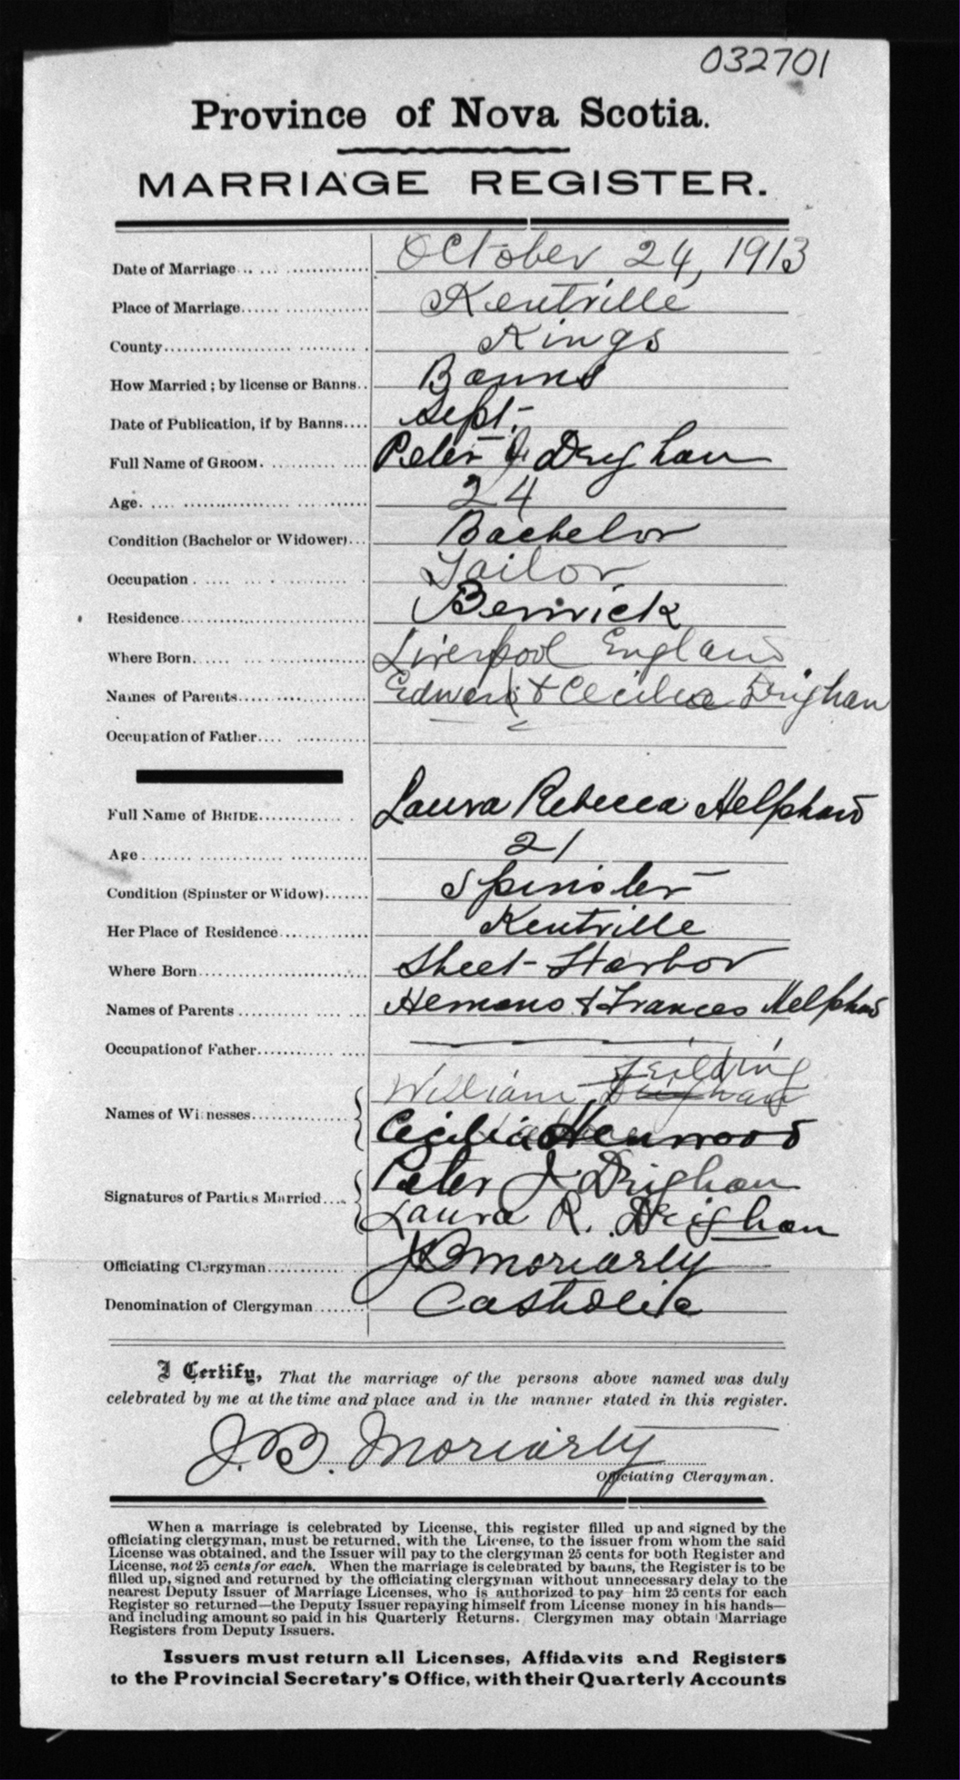 032701
Province of Nova Scotia.
MARRIAGE REGISTER.
Date of Marriage... October 24, 1913
Place of Marriage... Kentville
County... Kings
How Married; by license or Banns.. Banns
Date of Publication, if by Banns.... Sept.
Full Name of GROOM. Peter J Drighan
Age. 24
Condition (Bachelor or Widower)... Bachelor
Occupation. Tailor
Residence... Berwick
Where Born... Liverpool England
Names of Parents... Edward & Cecilia Drighan
Occupation of Father....
Full Name of BRIDE... Laura Rebecca
Age... 21
Condition (Spinster or Widow)... Spinster
Her Place of Residence... Kentville
Where Born... Sheet-Harbor
Names of Parents... & Frances
Occupation of Father...
Feilding
Names of Witnesses... William Drighan
Cecilia Henwood
Signatures of Parties Married... Peter J Drighan
Laura R. Drighan
Officiating Clergyman... JB Moriarty
Denomination of Clergyman... Catholic
I Certify, That the marriage of the persons above named was duly
celebrated by me at the time and place and in the manner stated in this register.
J.B. Moriarty
Officiating Clergyman.
When a marriage is celebrated by License, this register filled up and signed by the
officiating clergyman, must be returned, with the License, to the issuer from whom the said
License was obtained, and the Issuer will pay to the clergyman 25 cents for both Register and
License, not 25 cents for each. When the marriage is celebrated by banns, the Register is to be
filled up, signed and returned by the officiating clergyman without unnecessary delay to the
nearest Deputy Issuer of Marriage Licenses, who is authorized to pay him 25 cents for each
Register so returned—the Deputy Issuer repaying himself from License money in his hands—
and including amount so paid in his Quarterly Returns. Clergymen may obtain Marriage
Registers from Deputy Issuers.
Issuers must return all Licenses, Affidavits and Registers
to the Provincial Secretary's Office, with their Quarterly Accounts